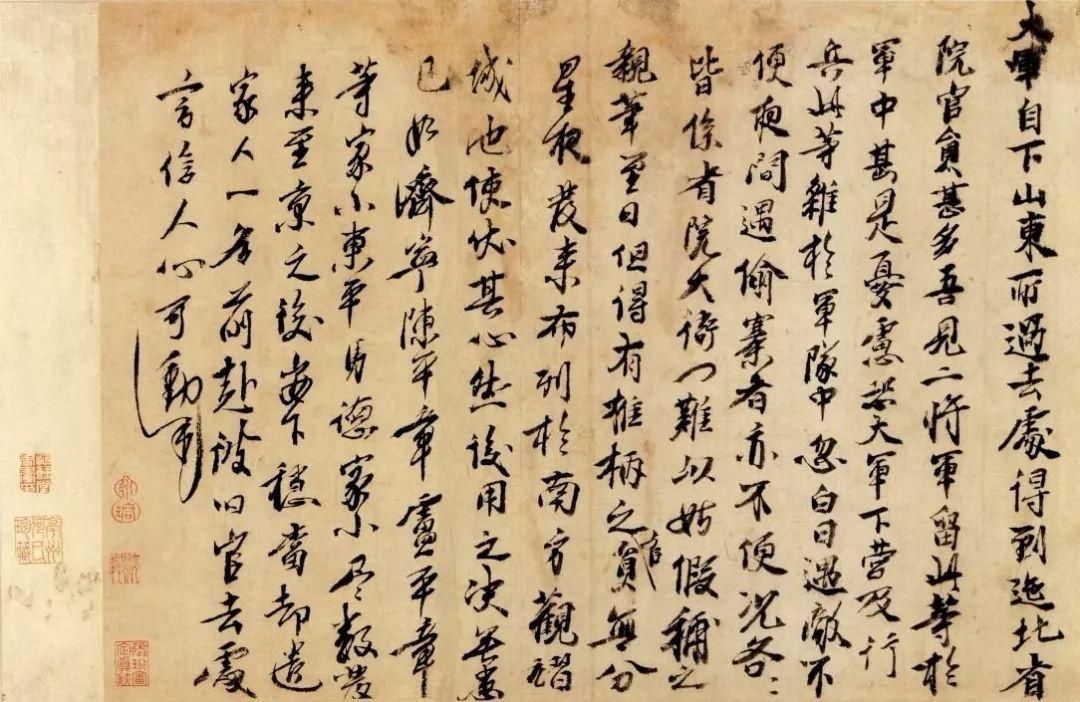 大軍自下山東所過去處得到迤北省
院官員甚多吾見二將軍留此等於
軍中甚是憂慮恐大軍下營及行
兵此等雜於軍隊中忽白日遇敵不
便夜間遇偷寨者亦不便況各:
皆係省院大衙門難以姑假補之
親筆至日但得有權柄之官員無分
星夜發來布列於南方觀
城池使伏其心然後用之決無患
已如濟寧陳平章盧平章
等家小東平馬德家小尽數發
來至京之後安下穩當却遣
家人一名前赴彼旧官去處
言信人心可動